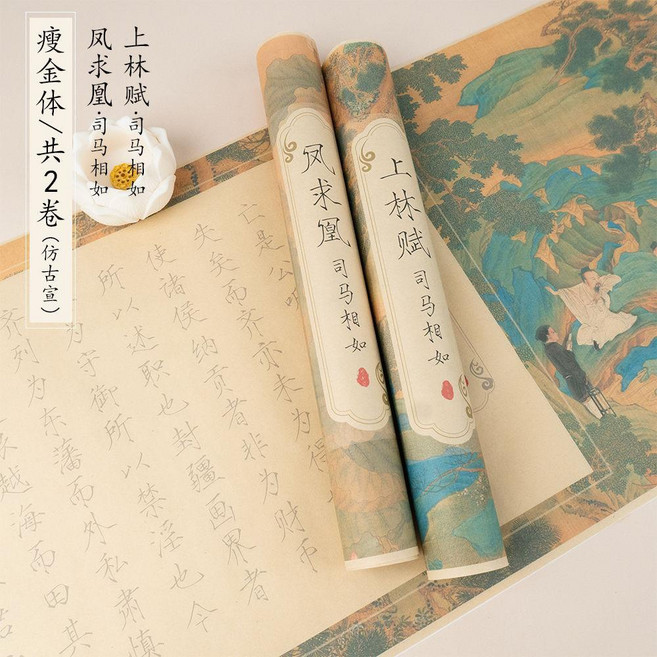 上林赋·司马相如
凤求凰·司马相如
瘦金体/共2卷(仿古宣)
上林赋 司马相如
凤求凰 司马相如
亡是公
失矣而齐亦未为得
使诸侯纳贡者非为财币
所以述职也封疆画界者
为守御所以禁淫也今
齐列为东藩而外私肃慎
越海而田其